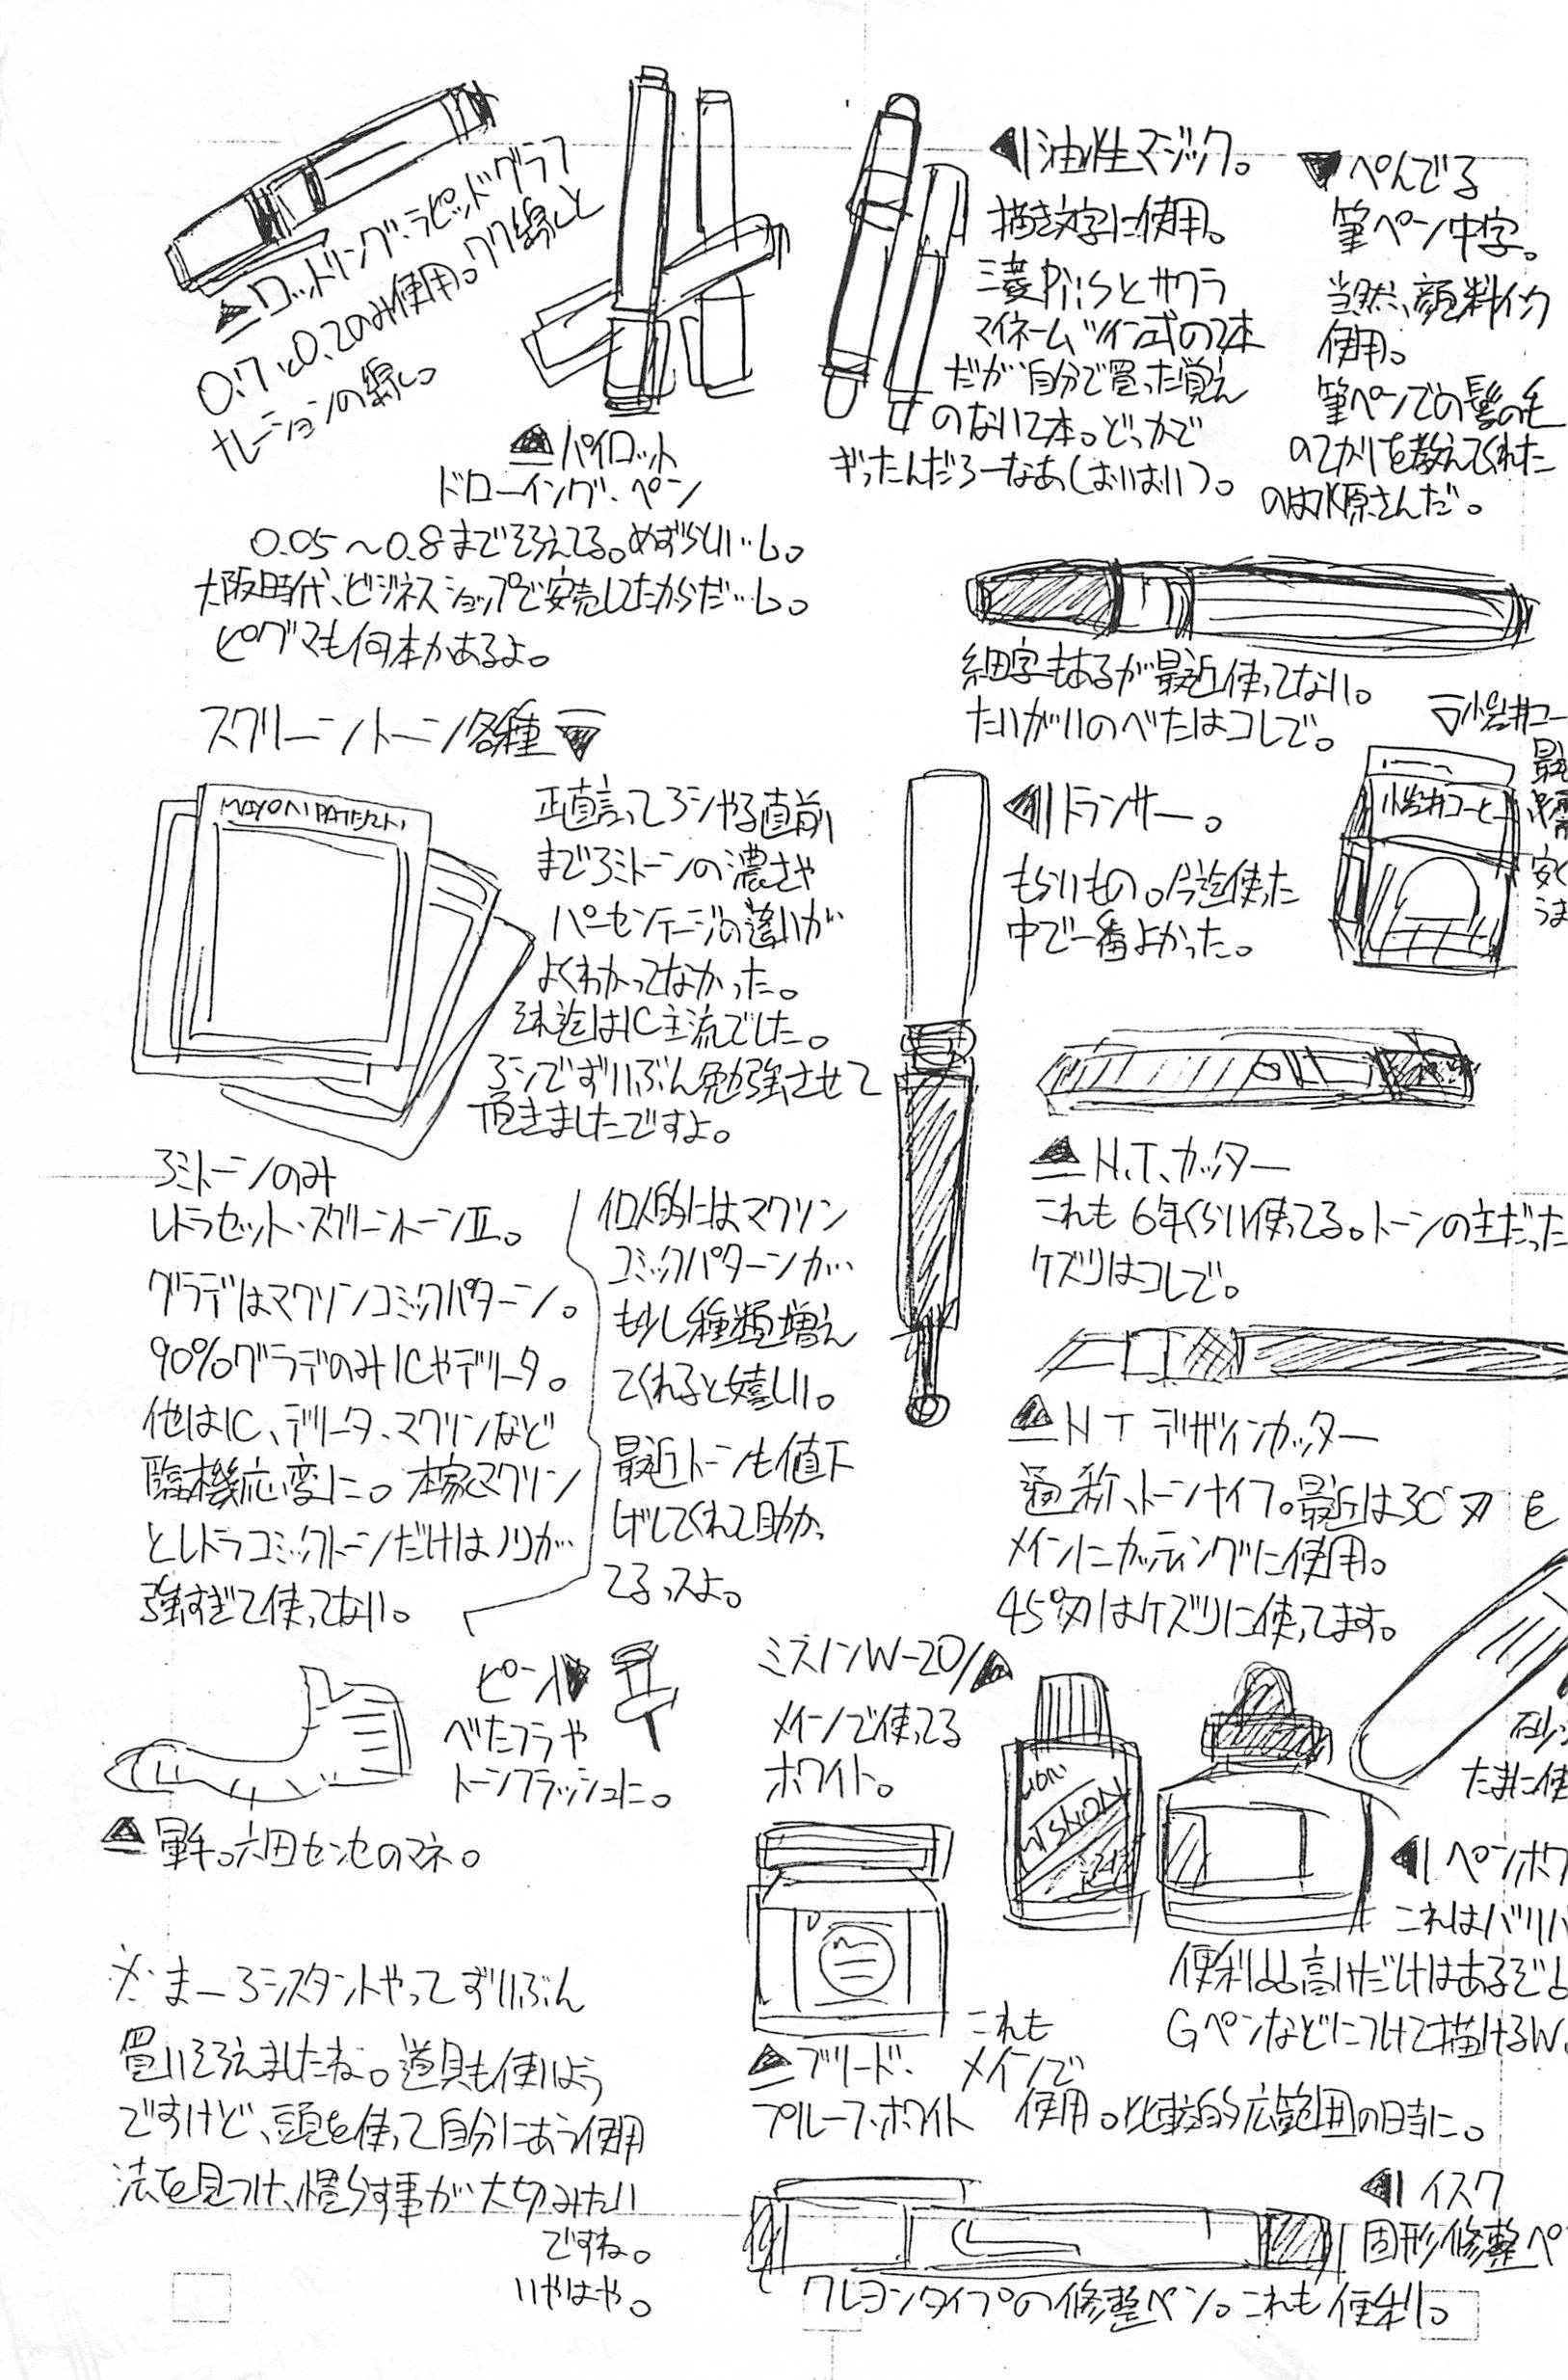 ロットリング・ラピッドグラフ
0.7と0.2のみ使用。ワク線と
ナレーションの線し。
パイロット
ドローイング・ペン
0.05〜0.8までそろえてる。めずらしい…し。
大阪時代、ビジネスショップで安売してたからだ…し。
ピグマも何本かあるよ。
油性マジック。
描き文字に使用。
三菱Piisとサクラ
マイネームツイン式の2本
だが自分で買った覚え
のない2本。どっかで
ぎったんだろーなあ(おいおい)。
ぺんてる
筆ペン中字。
当然、顔料インク
使用。
筆ペンでの髪の毛
のてかりを教えてくれた
のは水原さんだ。
細字もあるが最近使ってない。
たいがいのべたはコレで。
スクリーントーン各種
正直言ってアシやる直前
までアミトーンの濃さや
パーセンテージの違いが
よくわかってなかった。
それ迄はIC主流でした。
アシでずいぶん勉強させて
頂きましたですよ。
アミトーンのみ
レトラセット・スクリーントーンII。
グラデはマクソンコミックパターン。
90%グラデのみICやデリータ。
他はIC、デリータ、マクソンなど
臨機応変に。本家マクソン
とレトラコミックトーンだけはノリが…
強すぎて使ってない。
個人的にはマクソン
コミックパターンが…
も少し種類増え
てくれると嬉しい。
最近トーンも値下
げしてくれて助かっ
てるっスよ。
トランサー。
もらいもの。今迄使った
中で一番よかった。
小岩井コー
最
安く
うま
小岩井コーヒー
N.T.カッター
これも6年くらい使ってる。トーンの主だった
ケズリはコレで。
NTデザインカッター
通称、トーンナイフ。最近は30°刃を
メインにカッティングに使用。
45°刃はケズリに使ってます。
ピン
べたフラや
トーンフラッシュに。
軍手。六田センセのマネ。
ミスノンW-20
メインで使ってる
ホワイト。
uni
MISNON
砂
たまに使
ペンホワ
これはバリバ
便利。高いだけはあるぞよ
Gペンなどにつけて描けるW。
ブリード・
プルーフホワイト
これも
メインで
使用。比較的広範囲の時に。
イスク
固形修整ペ
クレヨンタイプの修整ペン。これも便利。
※まーアシスタントやってずいぶん
買いそろえましたね。道具も使いよう
ですけど、頭を使って自分にあう使用
法を見つけ、慣らす事が大切みたい
ですね。
いやはや。